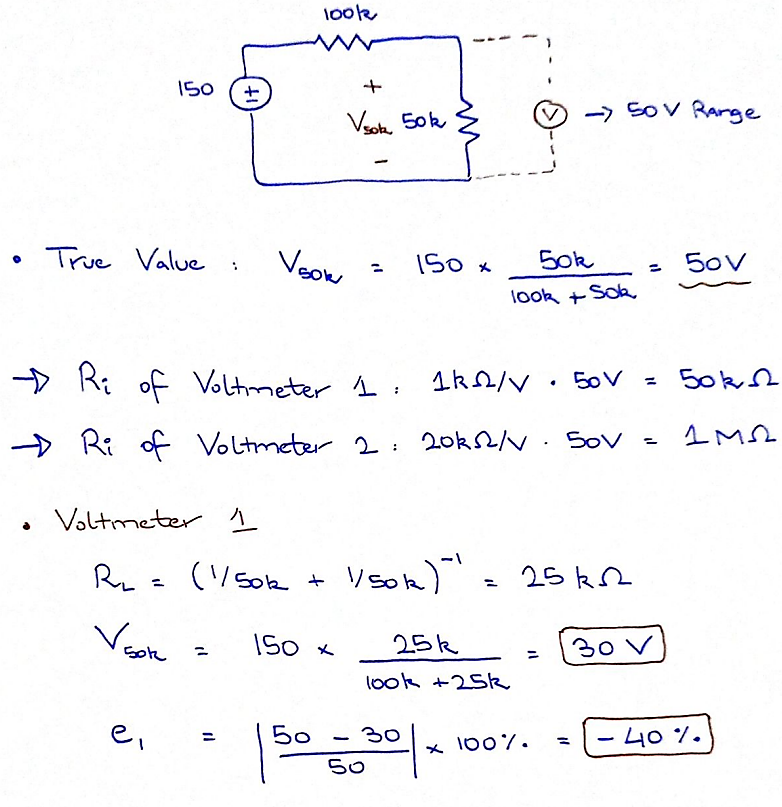 100k
150
+
V50k 50k
-
V → 50 V Range
• True Value : V50k = 150 × 50k / (100k + 50k) = 50V
→ Ri of Voltmeter 1 : 1kΩ/V . 50V = 50kΩ
→ Ri of Voltmeter 2 : 20kΩ/V . 50V = 1MΩ
• Voltmeter 1
RL = (1/50k + 1/50k)⁻¹ = 25 kΩ
V50k = 150 × 25k / (100k + 25k) = 30 V
e1 = |50 - 30 / 50| × 100% = -40 %